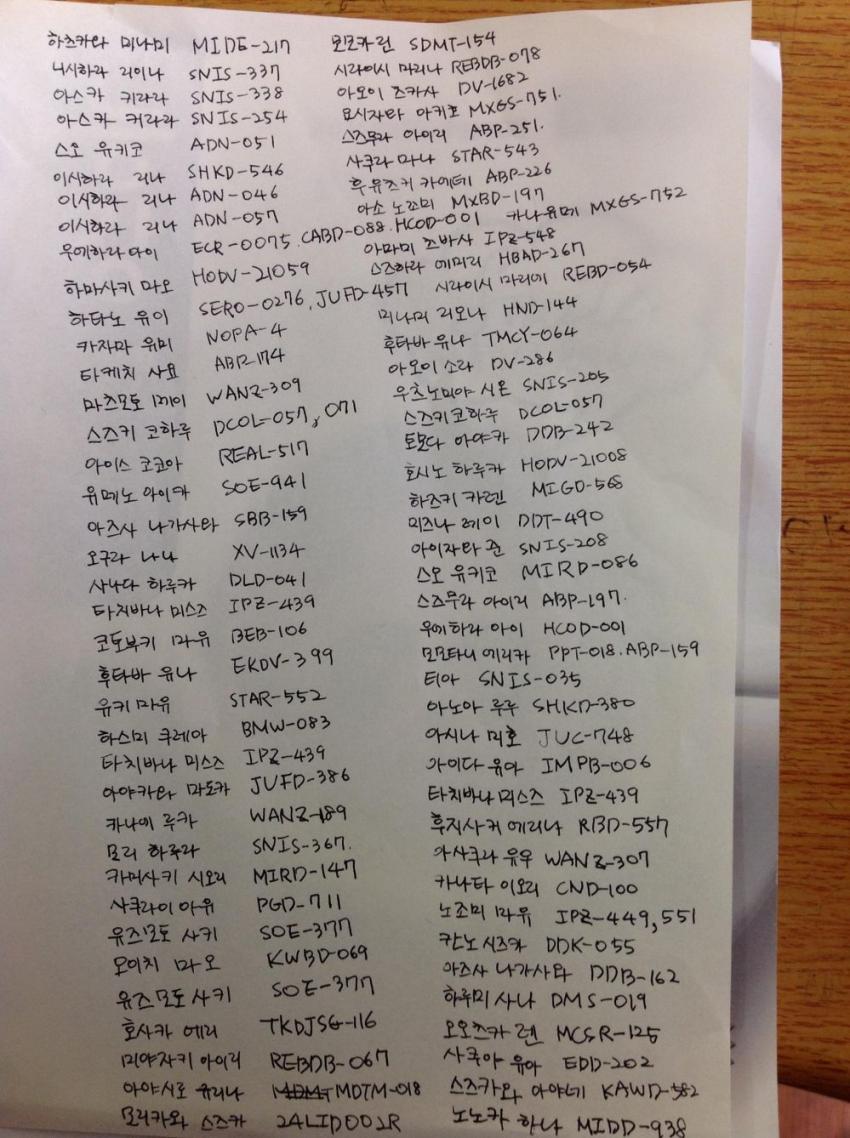 하즈키라 미나미 MIDE-217
니시하라 리이나 SNIS-337
아스카 키라라 SNIS-338
아스카 키라라 SNIS-254
스오 유키코 ADN-051
이시하라 리나 SHKD-546
이시하라 리나 ADN-046
이시하라 리나 ADN-057
우에하라 아이 ECR-0075. CABD-088. HCOD-001
하마사키 마오 HODV-21059
하타노 유이 SERO-0276, JUFD-457
카자마 유미 NOPA-4
타케치 사요 ABP-174
마츠모토 메이 WANZ-309
스즈키 코하루 DCOL-057, 071
아이스 코코아 REAL-517
유메노 아이카 SOE-941
아즈사 나가사와 SBB-159
오구라 나나 XV-1134
사나다 하루카 DLD-041
타치바나 미스즈 IPZ-439
코토부키 마유 BEB-106
후타바 유나 EKDV-399
유키 마유 STAR-552
하스미 쿠레아 BMW-083
타치바나 미스즈 IPZ-439
아야카와 마도카 JUFD-386
카나에 루카 WANZ-189
모리 하루라 SNIS-367.
카미사키 시오리 MIRD-147
사쿠라이 아유 PGD-711
유즈모토 사키 SOE-377
모이치 마오 KWBD-069
유즈모토 사키 SOE-377
호사카 에리 TKDJSG-116
미야자키 아이리 REBDB-067
아야시로 유리나 MDTM-018
모리카와 스즈카 24LID002R
모모카 린 SDMT-154
시라이시 마리나 REBDB-078
아오이 츠카사 DV-1682
요시자와 아키호 MXGS-751.
스즈무라 아이리 ABP-251.
사쿠라 마나 STAR-543
후유츠키 카에데 ABP-226
아소 노조미 MXBD-197
카나 유메 MXGS-752
아마미 츠바사 IPZ-548
스즈하라 에미리 HBAD-267
시라이시 마리에 REBD-054
미나미 리오나 HND-144
후타바 유나 TMCY-064
아오이 소라 DV-286
우츠노미야 시온 SNIS-205
스즈키 코하루 DCOL-057
토모다 아야카 DDB-242
호시노 하루카 HODV-21008
하즈키 카렌 MIGD-568
미즈나 레이 DDT-490
아이자와 준 SNIS-208
스오 유키코 MIRD-086
스즈무라 아이리 ABP-197.
우에하라 아이 HCOD-001
모모타니 에리카 PPT-018. ABP-159
티아 SNIS-035
아노아 루루 SHKD-380
아시나 미호 JUC-748
아이다 유아 IMPB-006
타치바나 미스즈 IPZ-439
후지사키 에리나 RBD-557
아사쿠라 유우 WANZ-307
카나타 이오리 CND-100
노조미 마유 IPZ-449, 551
칸노 시즈카 DDK-055
아즈사 나가사와 DDB-162
하루미 사나 DMS-019
오오츠카 렌 MCSR-125
사쿠야 유아 EDD-202
스즈카와 아야네 KAWD-582
노노카 하나 MIDD-938